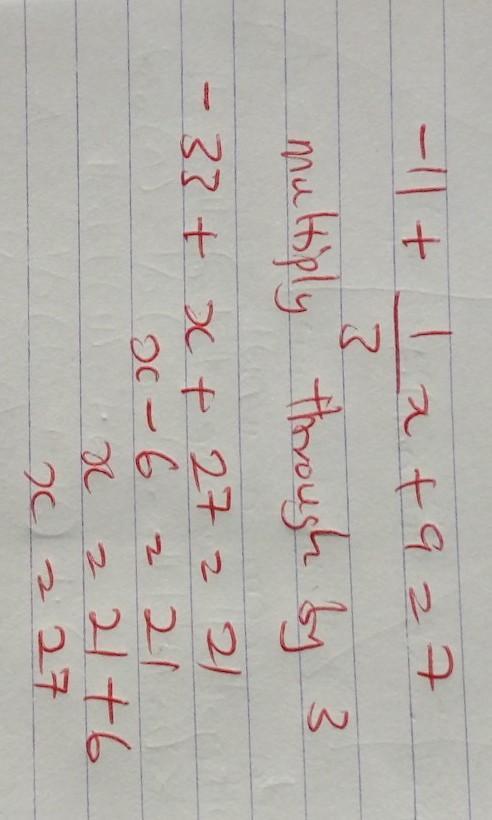 -11 + 1/3 x + 9 = 7
multiply through by 3
- 33 + x + 27 = 21
x - 6 = 21
x = 21 + 6
x = 27